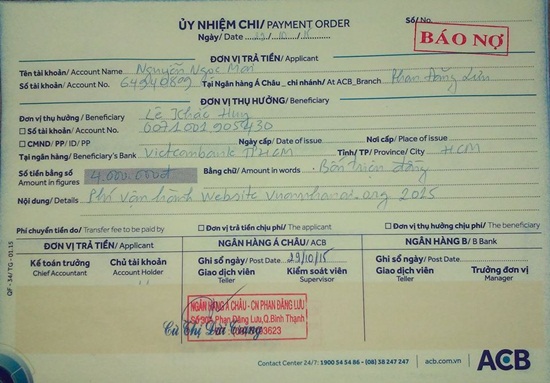 ỦY NHIỆM CHI/ PAYMENT ORDER
Số/ No.
Ngày/ Date 29/10/15
BÁO NỢ
ĐƠN VỊ TRẢ TIỀN/ Applicant
Tên tài khoản/ Account Name Nguyễn Ngọc Mai
Số tài khoản/ Account No. Tại Ngân hàng Á Châu_ chi nhánh/ At ACB_Branch Phan Đăng Lưu
ĐƠN VỊ THỤ HƯỞNG/ Beneficiary
Đơn vị thụ hưởng/ Beneficiary Lê Khắc Huy
Số tài khoản/ Account No. 0071001205430
CMND/ PP/ ID/ PP Ngày cấp/ Date of issue Nơi cấp/ Place of issue
Tại ngân hàng/ Beneficiary's Bank Vietcombank TPHCM Tỉnh/ TP/ Province/ City HCM
Số tiền bằng số Amount in figures 4.000.000đ Bằng chữ/ Amount in words Bốn triệu đồng
Nội dung/ Details Phí vận hành website 2015
Phí chuyển tiền do/ Transfer fee to be paid by Đơn vị trả tiền chịu phí/ The applicant Đơn vị thụ hưởng chịu phí/ The beneficiary
ĐƠN VỊ TRẢ TIỀN/ Applicant
Kế toán trưởng Chủ tài khoản
Chief Accountant Account Holder
NGÂN HÀNG Á CHÂU/ ACB
Ghi sổ ngày/ Post Date 29/10/15
Giao dịch viên Kiểm soát viên
Teller Supervisor
NGÂN HÀNG B/ B Bank
Ghi sổ ngày/ Post Date
Giao dịch viên Trưởng đơn vị
Teller Manager
NGÂN HÀNG Á CHÂU - CN PHAN ĐĂNG LƯU
Phan Đăng Lưu, Q.Bình Thạnh
QF - 34/TG - 01.15
Contact Center 24/7: 1900 54 54 86 - (08) 38 247 247 acb.com.vn ACB